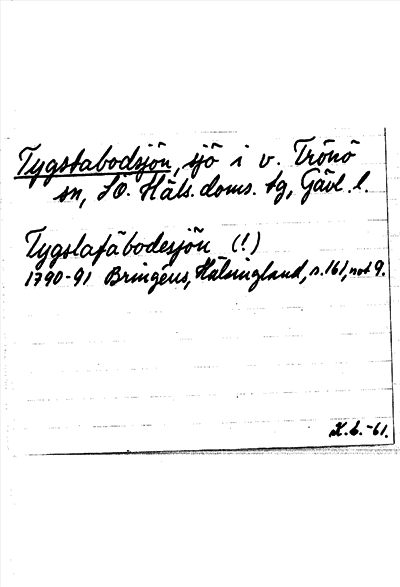 Tygstabodsjön, sjö i v. Trönö
sn, SÖ. Häls. doms. tg, Gävl. l.
Tygslafäbodesjön (!)
1790-91 Bringéus, Hälsingland, s. 161, not 9.
K. L. -61.